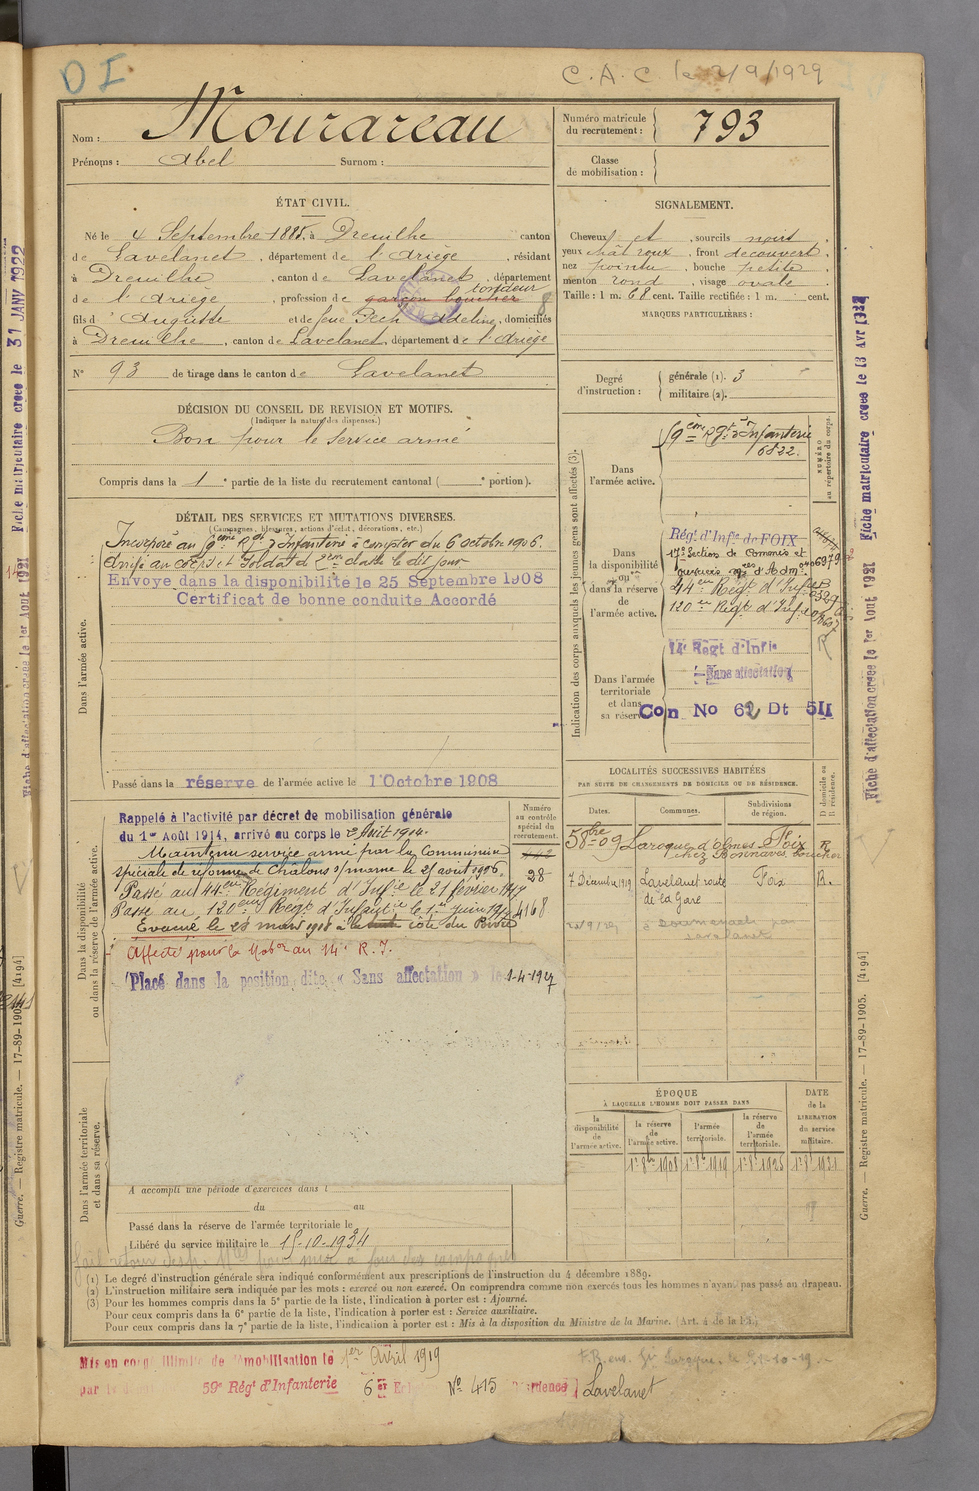 D I
C. A. C. le 2/9/1929
Nom : Mourareau
Prénoms : Abel Surnom :
Numéro matricule du recrutement : 793
Classe de mobilisation :
ÉTAT CIVIL.
Né le 4 Septembre 1885, à Dreuilhe canton
de Lavelanet, département de l'Ariège, résidant
à Dreuilhe, canton de Lavelanet, département
de l'Ariège, profession de garçon boucher tondeur
fils d'Auguste et de feue Pech Adeline, domiciliés
à Dreuilhe, canton de Lavelanet, département de l'Ariège
N° 93 de tirage dans le canton de Lavelanet
SIGNALEMENT.
Cheveux et, sourcils noirs
yeux chât roux, front découvert,
nez pointu, bouche petite,
menton rond, visage ovale
Taille : 1 m. 68 cent. Taille rectifiée : 1 m. cent.
MARQUES PARTICULIÈRES :
Degré d'instruction : générale (1). 3
militaire (2).
DÉCISION DU CONSEIL DE REVISION ET MOTIFS.
(Indiquer la nature des dispenses.)
Bon pour le service armé
Compris dans la 1e partie de la liste du recrutement cantonal ( e portion).
DÉTAIL DES SERVICES ET MUTATIONS DIVERSES.
(Campagnes, blessures, actions d'éclat, décorations, etc.)
Dans l'armée active.
Incorporé au 9ème Rgt d'Infanterie à compter du 6 octobre 1906.
Arrivé au corps et Soldat de 2ème classe le dit jour
Envoyé dans la disponibilité le 25 Septembre 1908
Certificat de bonne conduite Accordé
Passé dans la réserve de l'armée active le 1 Octobre 1908
Indication des corps auxquels les jeunes gens sont affectés (3).
NUMÉRO au répertoire du corps.
Dans l'armée active.
9ème Rgt d'Infanterie
6822.
Dans la disponibilité ou dans la réserve de l'armée active.
Régt d'Infie de FOIX
17e Section de Commis et
ouvriers mres d'Adm.
44eme Régt d'Inf.
120me Régt d'Inf.
Dans l'armée territoriale et dans sa réserve
14e Regt d'Infie
Sans affectation
Con No 62 Dt 511
Dans la disponibilité ou dans la réserve de l'armée active.
Numéro au contrôle spécial du recrutement.
28
4168
Rappelé à l'activité par décret de mobilisation générale
du 1er Août 1914, arrivé au corps le 2 Août 1914.
Maintenu service armé par la Commission
spéciale de réforme de Châlons s/marne le 25 août 1916.
Passé au 44eme Régiment d'Infie le 21 février 1917
Passé au 120eme Régt d'Infantie le 1er juin 1917
Evacué le 28 mars 1918 côte du Poivre
Affecté pour la Mobon au 14e R. I.
Placé dans la position dite « Sans affectation » le 1-4-1927
LOCALITÉS SUCCESSIVES HABITÉES
PAR SUITE DE CHANGEMENTS DE DOMICILE OU DE RÉSIDENCE.
Dates. Communes. Subdivisions de région. D domicile ou R résidence.
5 8bre 09 Laroque d'olmes Foix R
chez Bonnaves boucher
7 Décembre 1919 Lavelanet route de la Gare Foix R.
Dans l'armée territoriale et dans sa réserve.
A accompli une période d'exercices dans l
du au
Passé dans la réserve de l'armée territoriale le
Libéré du service militaire le 15-10-1934
ÉPOQUE
À LAQUELLE L'HOMME DOIT PASSER DANS
la disponibilité de l'armée active. la réserve de l'armée active. l'armée territoriale. la réserve de l'armée territoriale.
DATE de la LIBÉRATION du service militaire.
1er 8bre 1908 1er 8bre 1919 1er 8bre 1925 1er 8bre 1931
(1) Le degré d'instruction générale sera indiqué conformément aux prescriptions de l'instruction du 4 décembre 1889.
(2) L'instruction militaire sera indiquée par les mots : exercé ou non exercé. On comprendra comme non exercés tous les hommes n'ayant pas passé au drapeau.
(3) Pour les hommes compris dans la 5e partie de la liste, l'indication à porter est : Ajourné.
Pour ceux compris dans la 6e partie de la liste, l'indication à porter est : Service auxiliaire.
Pour ceux compris dans la 7e partie de la liste, l'indication à porter est : Mis à la disposition du Ministre de la Marine. (Art. 4 de la loi.)
Mis en congé illimité de démobilisation le 1er Avril 1919
par le 59e Régt d'Infanterie 6e No 415 Résidence Lavelanet
Fiche d'affectation créée le 1er Aout 1921 Fiche matriculaire créée le 13 Avr
Guerre. — Registre matricule. — 17-89-1905. [4194]
Fiche d'affectation créée le 1er Aout 1921 Fiche matriculaire créée le 31 JANV 1922
Guerre. — Registre matricule. — 17-89-1905. [4194]